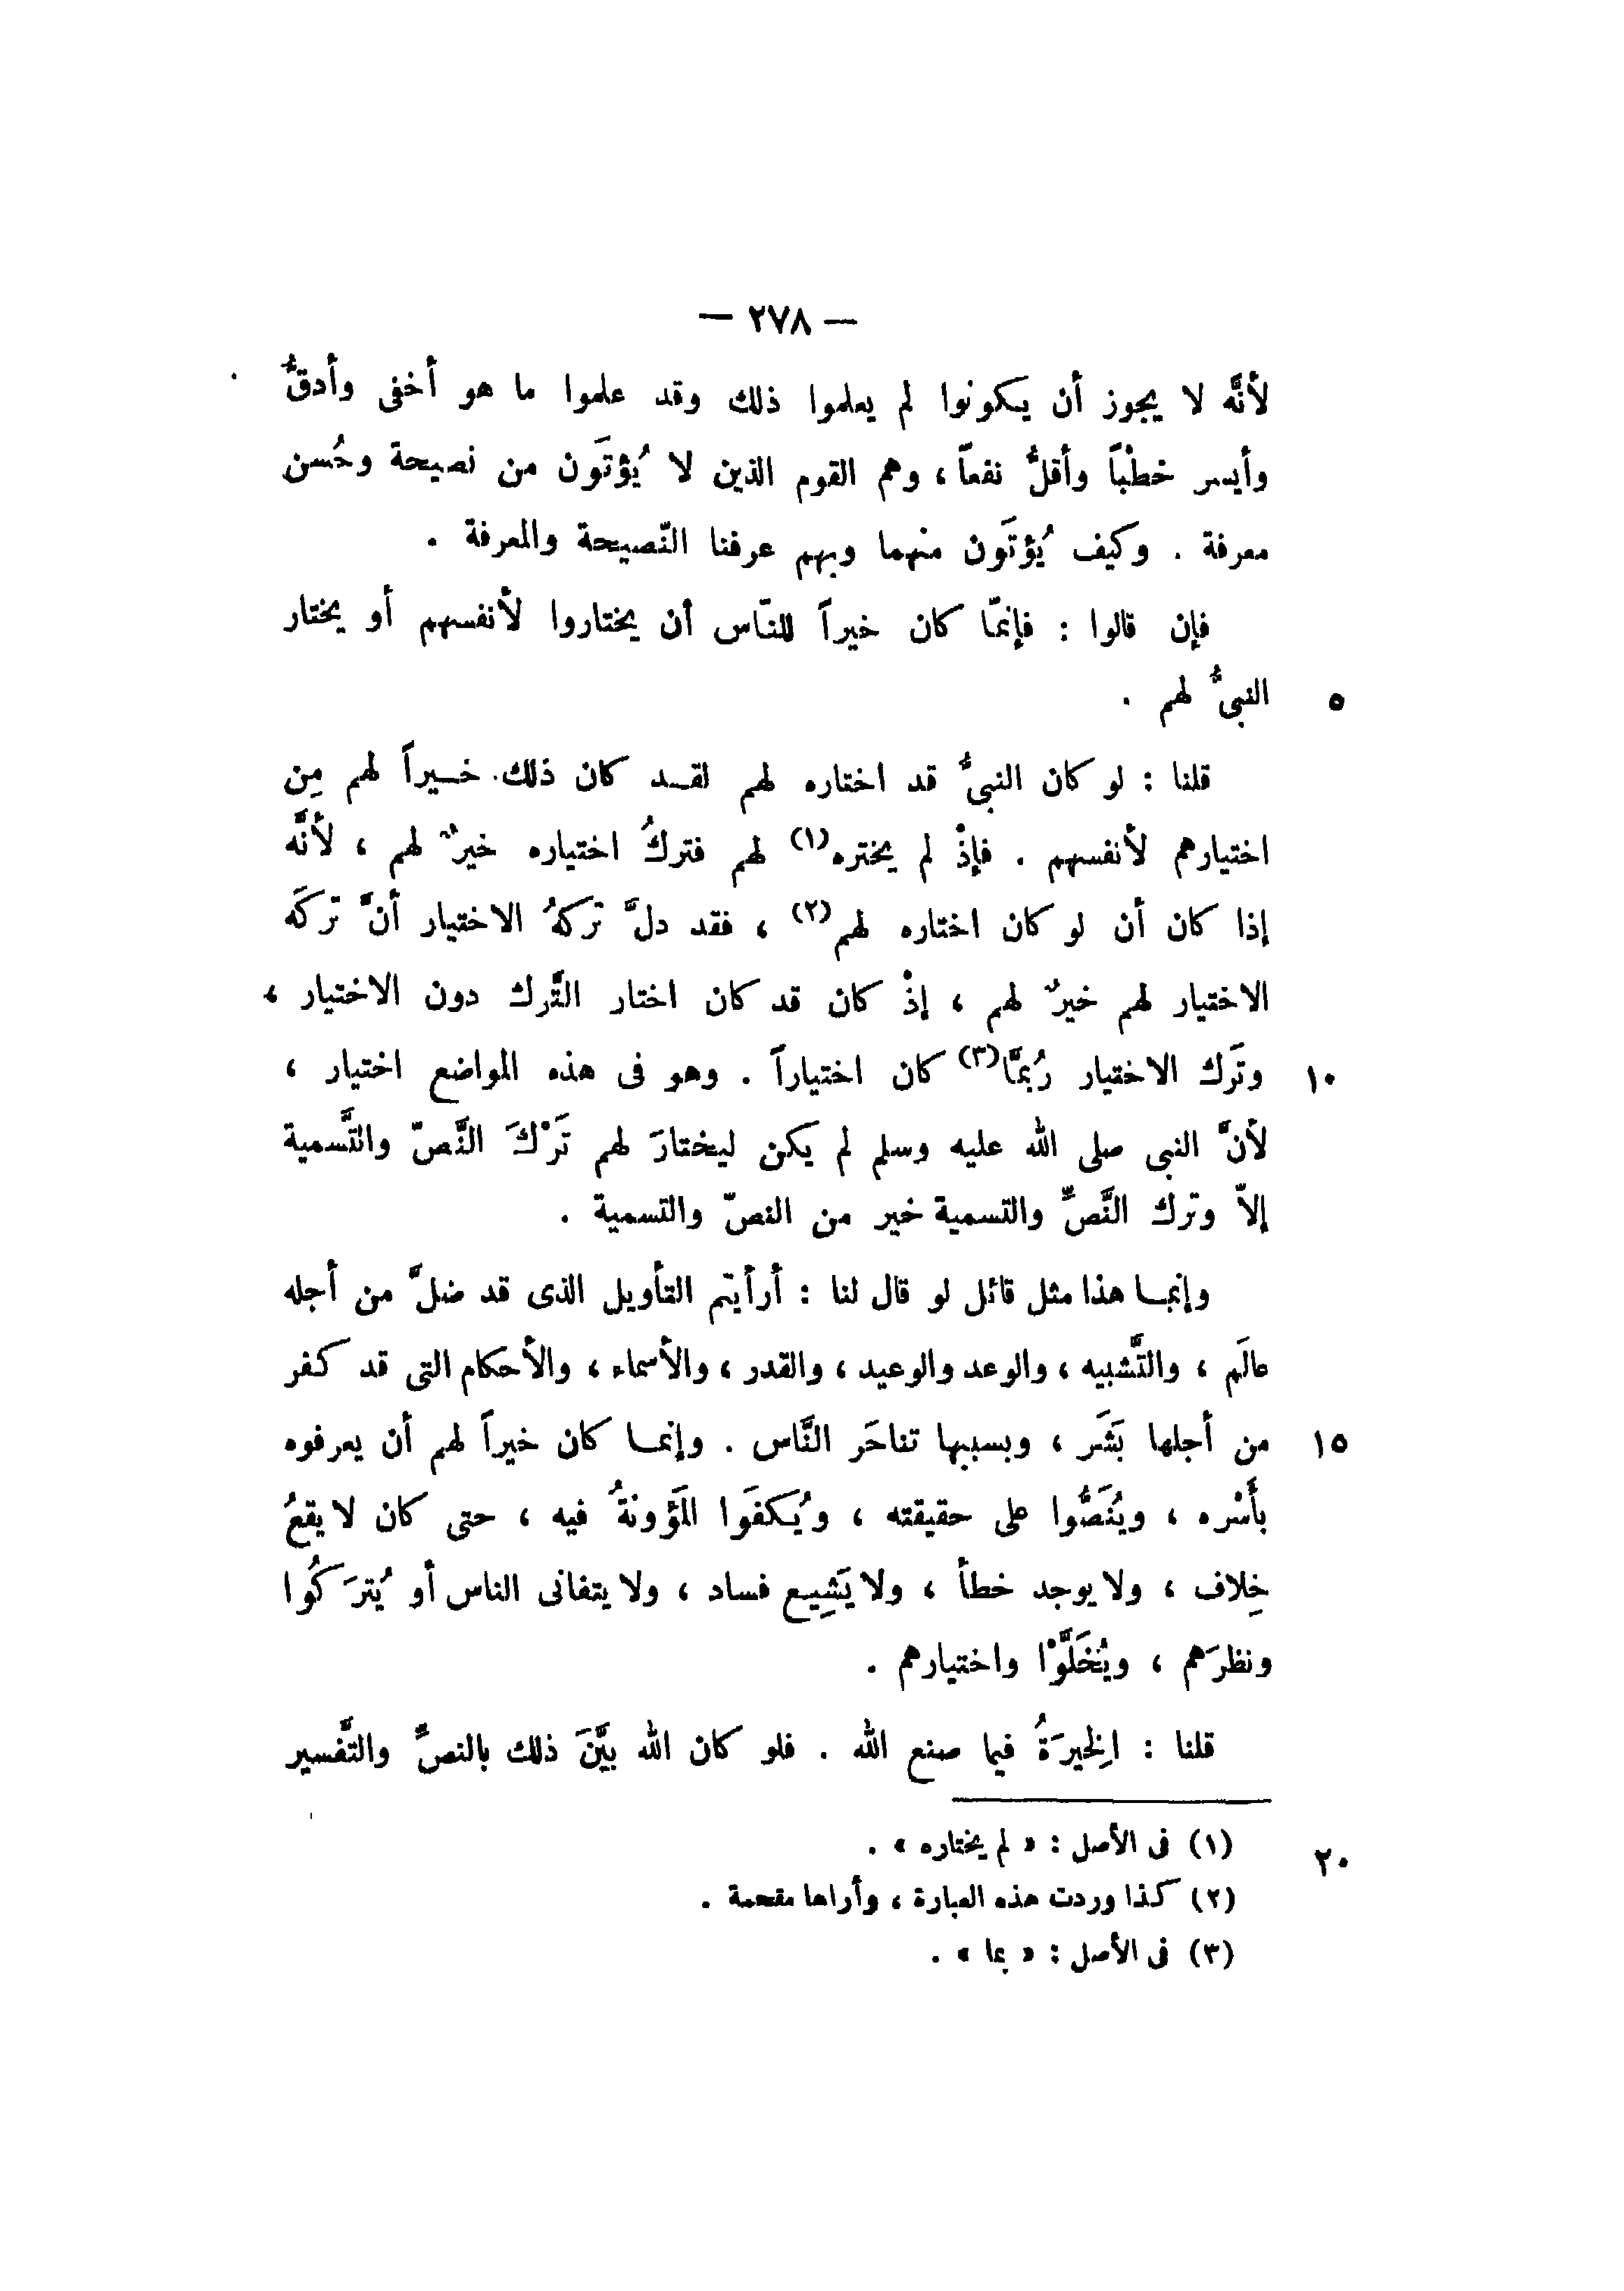 — ٢٧٨ —
لأنَّه لا يجوز أن يكونوا لم يعلموا ذلك وقد علموا ما هو أخفى وأدقُّ
وأيسر خطْباً وأقلُّ نفعاً ، وهم القوم الذين لا يُؤتَون من نصيحة وحُسن
معرفة . وكيف يُؤتَون منهما وبهم عرفنا النّصيحة والمعرفة .
فإن قالوا : فإنمّا كان خيراً للنّاس أن يختاروا لأنفسهم أو يختار
النبىُّ لهم . ٥
قلنا : لو كان النبىُّ قد اختاره لهم لقد كان ذلك خيراً لهم مِن
اختيارهم لأنفسهم . فإذْ لم يختره(١) لهم فتركُ اختياره خيرٌ لهم ، لأنَّه
إذا كان أن لو كان اختاره لهم(٢) ، فقد دلَّ تركهُ الاختيار أنَّ تركَه
الاختيار لهم خيرٌ لهم ، إذْ كان قد كان اختار التَّرك دون الاختيار ،
وتَرك الاختيار رُبمَّا(٣) كان اختياراً . وهو فى هذه المواضع اختيار ، ١٠
لأنَّ النبى صلى الله عليه وسلم لم يكن ليختارَ لهم تَرْكَ النَّصّ والتَّسمية
إلاّ وترك النَّصِّ والتسمية خير من النصّ والتسمية .
وإنما هذا مثل قائل لو قال لنا : أرأيتم التأويل الذى قد ضلَّ من أجله
عالَم ، والتَّشبيه ، والوعد والوعيد ، والقدر ، والأسماء ، والأحكام التى قد كفر
من أجلها بَشَر ، وبسببها تناحَر النَّاس . وإنما كان خيراً لهم أن يعرفوه ١٥
بأَسْره ، ويُنَصُّوا على حقيقته ، ويُكفَوا المَؤونةُ فيه ، حتى كان لا يقعُ
خِلاف ، ولا يوجد خطأ ، ولا يَشِيع فساد ، ولا يتفانى الناس أو يُترَكُوا
ونظرَهم ، ويُخَلَّوْا واختيارهم .
قلنا : الخِيرَةُ فيما صنع الله . فلو كان الله بيَّنَ ذلك بالنصِّ والتَّفسير
(١) فى الأصل : « لم يختاره » . ٢٠
(٢) كذا وردت هذه العبارة ، وأراها مقحمة .
(٣) فى الأصل : « بما » .